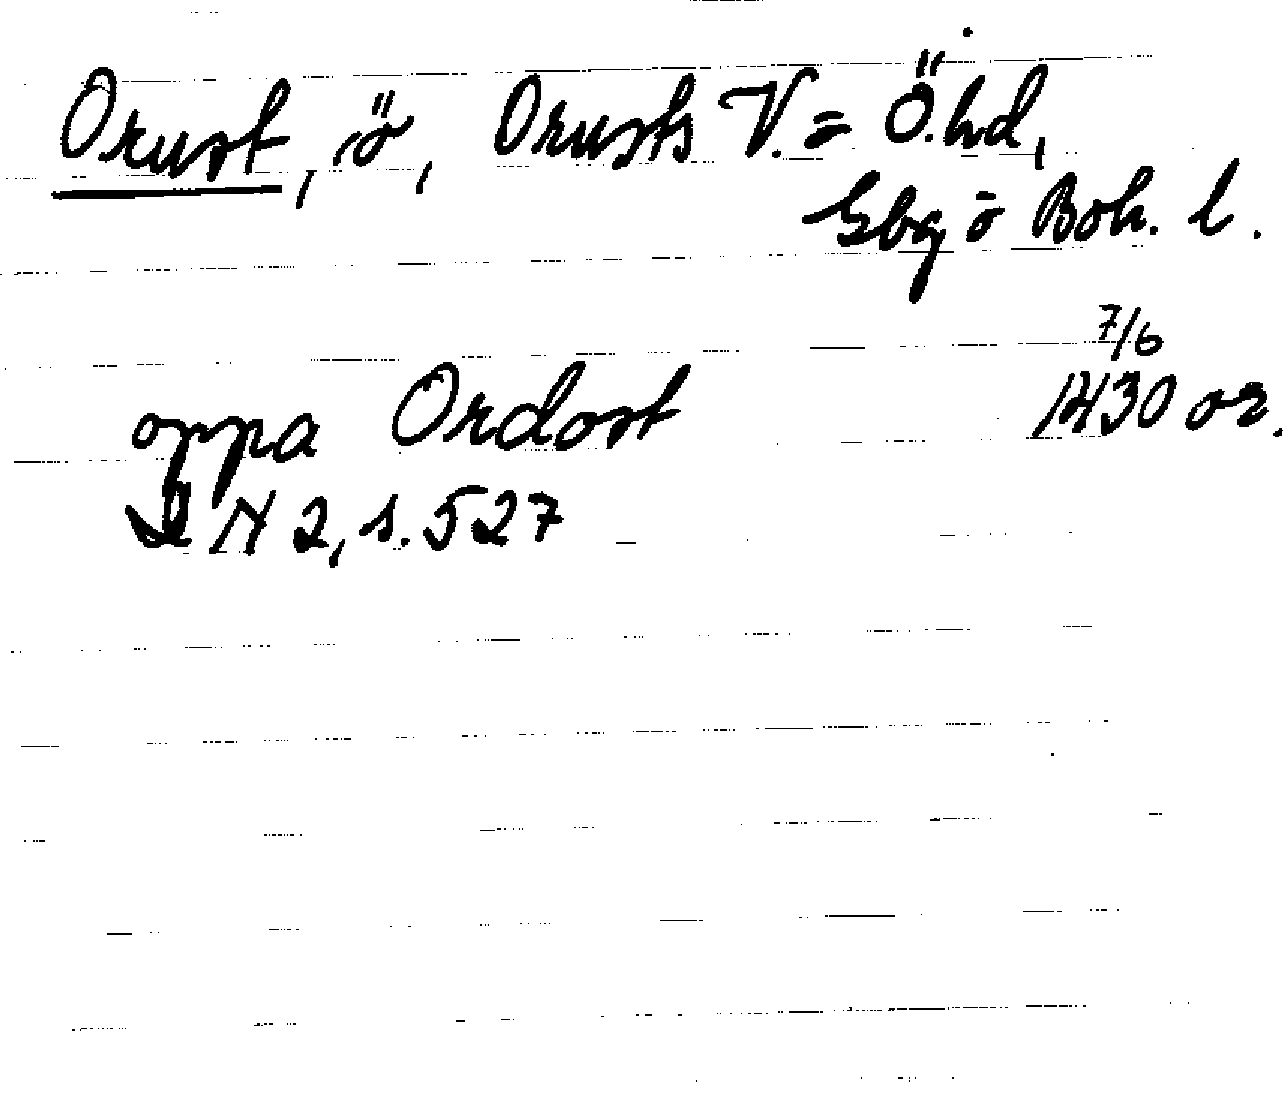 Orust, ö, Orusts V. o Ö. hd,
Gbg o Boh. l.
7/6
1430 or.
oppa Ordost
DN 2, s. 527